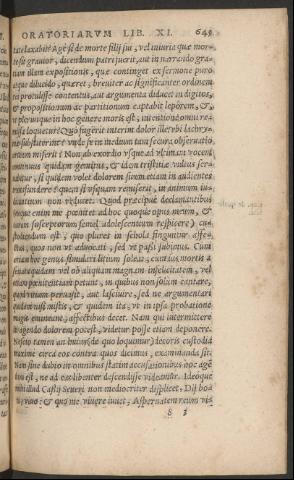 ORATORIARVM LIB. XI. 649
tate laxabit? Agè si de morte filij sui, vel iniuria quæ mor-
te sit grauior, dicendum patri fuerit, aut in narrando gra-
tiam illam expositionis, quæ continget ex sermone puro
atque dilucido, quæret, breuiter ac significanter ordinem
rei protulisse contentus, aut argumenta diducet in digitos,
& propositionum ac partitionum captabit leporem, &,
vt plerunque in hoc genere moris est, intentione omni re-
missa loquetur? Quò fugerit interim dolor ille? vbi lachry-
mæ substiterint? vnde se in medium tam secura obseruatio
artium miserit? Non ab exordio vsque ad vltimam vocem
continuus quidam gemitus, & idem tristitiæ vultus ser-
uabitur, si quidem volet dolorem suum etiam in audientes
transfundere? quem si vsquam remiserit, in animum iu-
dicantium non reducet. Quod præcipuè declamantibus
(neque enim me pœnitet ad hoc quoque opus meum, &
curam susceptorum semel adolescentium respicere) cu-
stodiendum est, quo plures in schola finguntur affe-
ctus, quos non vt aduocati, sed vt passi subimus. Cùm
etiam hoc genus simulari litium soleat, cùm ius mortis à
senatu quidam vel ob aliquam magnam infelicitatem, vel
etiam pœnitentiam petunt, in quibus non solùm cantare,
quod vitium peruasit, aut lasciuire, sed ne argumentari
quidem nisi mistis, & quidem ita, vt in ipsa probatione
magis emineant, affectibus decet. Nam qui intermittere
in agendo dolorem potest, videtur posse etiam deponere.
Nescio tamen an huius (de quo loquimur) decoris custodia
maximè circa eos contra quos dicimus, examinanda sit.
Nam sine dubio in omnibus statim accusationibus hoc agen-
dum est, ne ad eas libenter descendisse videamur. Ideoque
mihi illud Cassij Seueri non mediocriter displicet, Dij bo-
ni, viuo: & quo me viuere iuuet, Asprenatem reum vi-